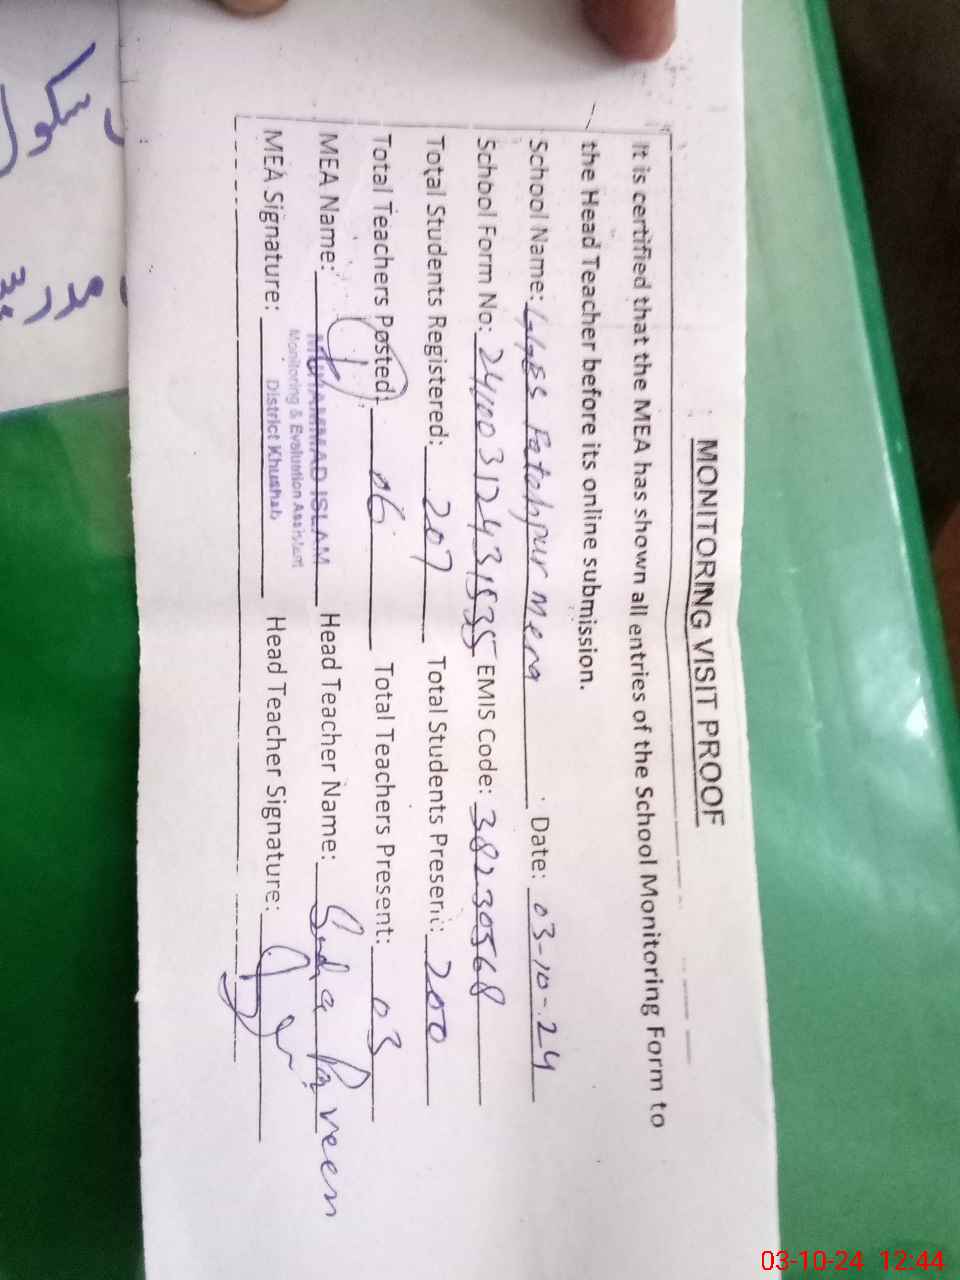 MONITORING VISIT PROOF
It is certified that the MEA has shown all entries of the School Monitoring Form to
the Head Teacher before its online submission.
School Name: Fatahpur Mera Date: 03-10-24
School Form No: EMIS Code: 38230568
Total Students Registered: 207 Total Students Present: 200
Total Teachers Posted: 06 Total Teachers Present: 03
MEA Name: MUHAMMAD ISLAM Head Teacher Name: Parveen
Monitoring & Evaluation Assistant
District Khushab
MEA Signature: Head Teacher Signature:
03-10-24 12:44